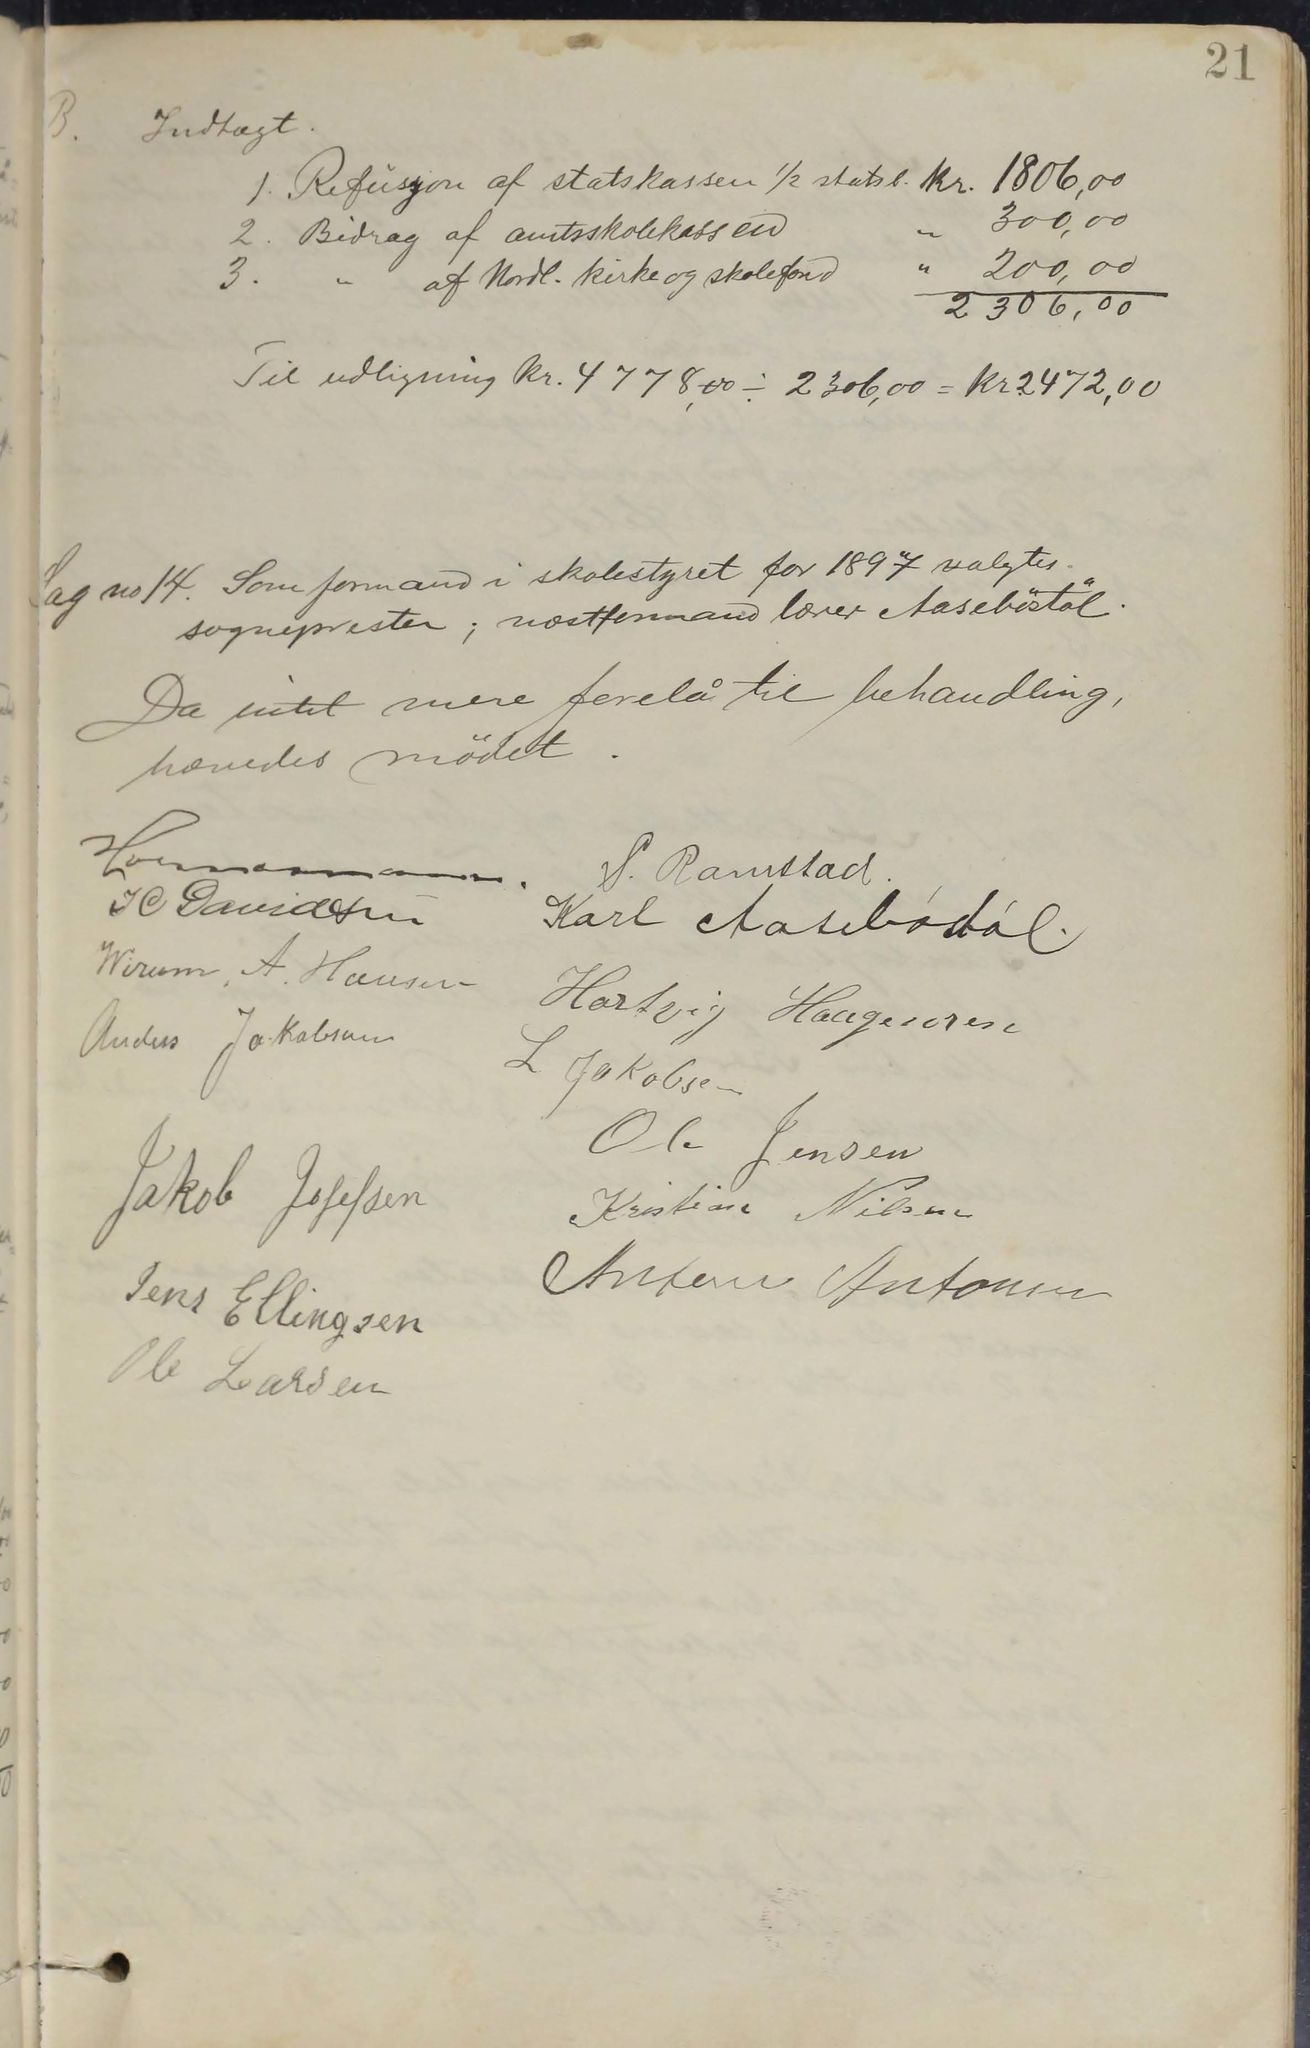 21
B. Indtægt.
1. Refusjon af statskassen 1/2 statsb. kr. 1806,00
2. Bidrag af amtsskolekassen " 300,00
3. " af Nordl. kirke og skolefond " 200,00
2306,00
Til udligning kr. 4778,00 ÷ 2306,00 = kr. 2472,00
Sag no 14. Som formand i skolestyret for 1897 valgtes
sognepresten; næstformand lærer Aasebøstöl.
Da intet mere forelå til behandling,
hævedes mödet.
S. Ramstad.
H C Davidsen
Karl Aasebøstöl.
A. Hansen
Hartvig Haagensen
Anders Jakobsen
L Jakobsen
Ole Jensen
Jakob Josefsen
Kristian Nilsen
Antonsen
Jens Ellingsen
Ole Larsen